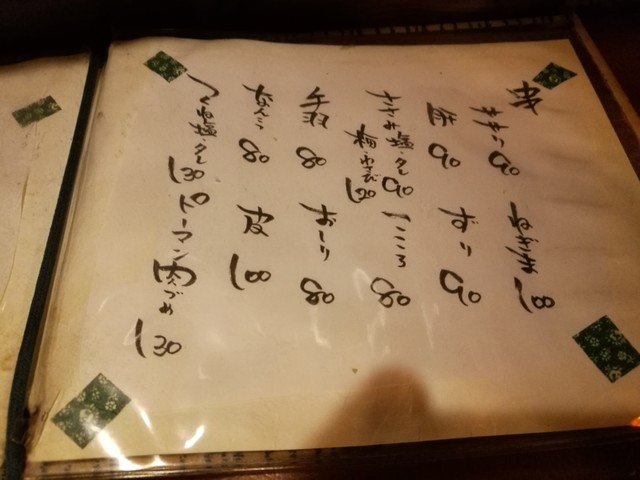 串
せせり 90
ねぎま 100
肝 90
ずり 90
ささみ 塩・タレ 90
梅・わさび
こころ 80
手羽 80
おしり 80
なんこつ 80
皮 100
つくね 塩・タレ 130
ピーマン肉づめ 130